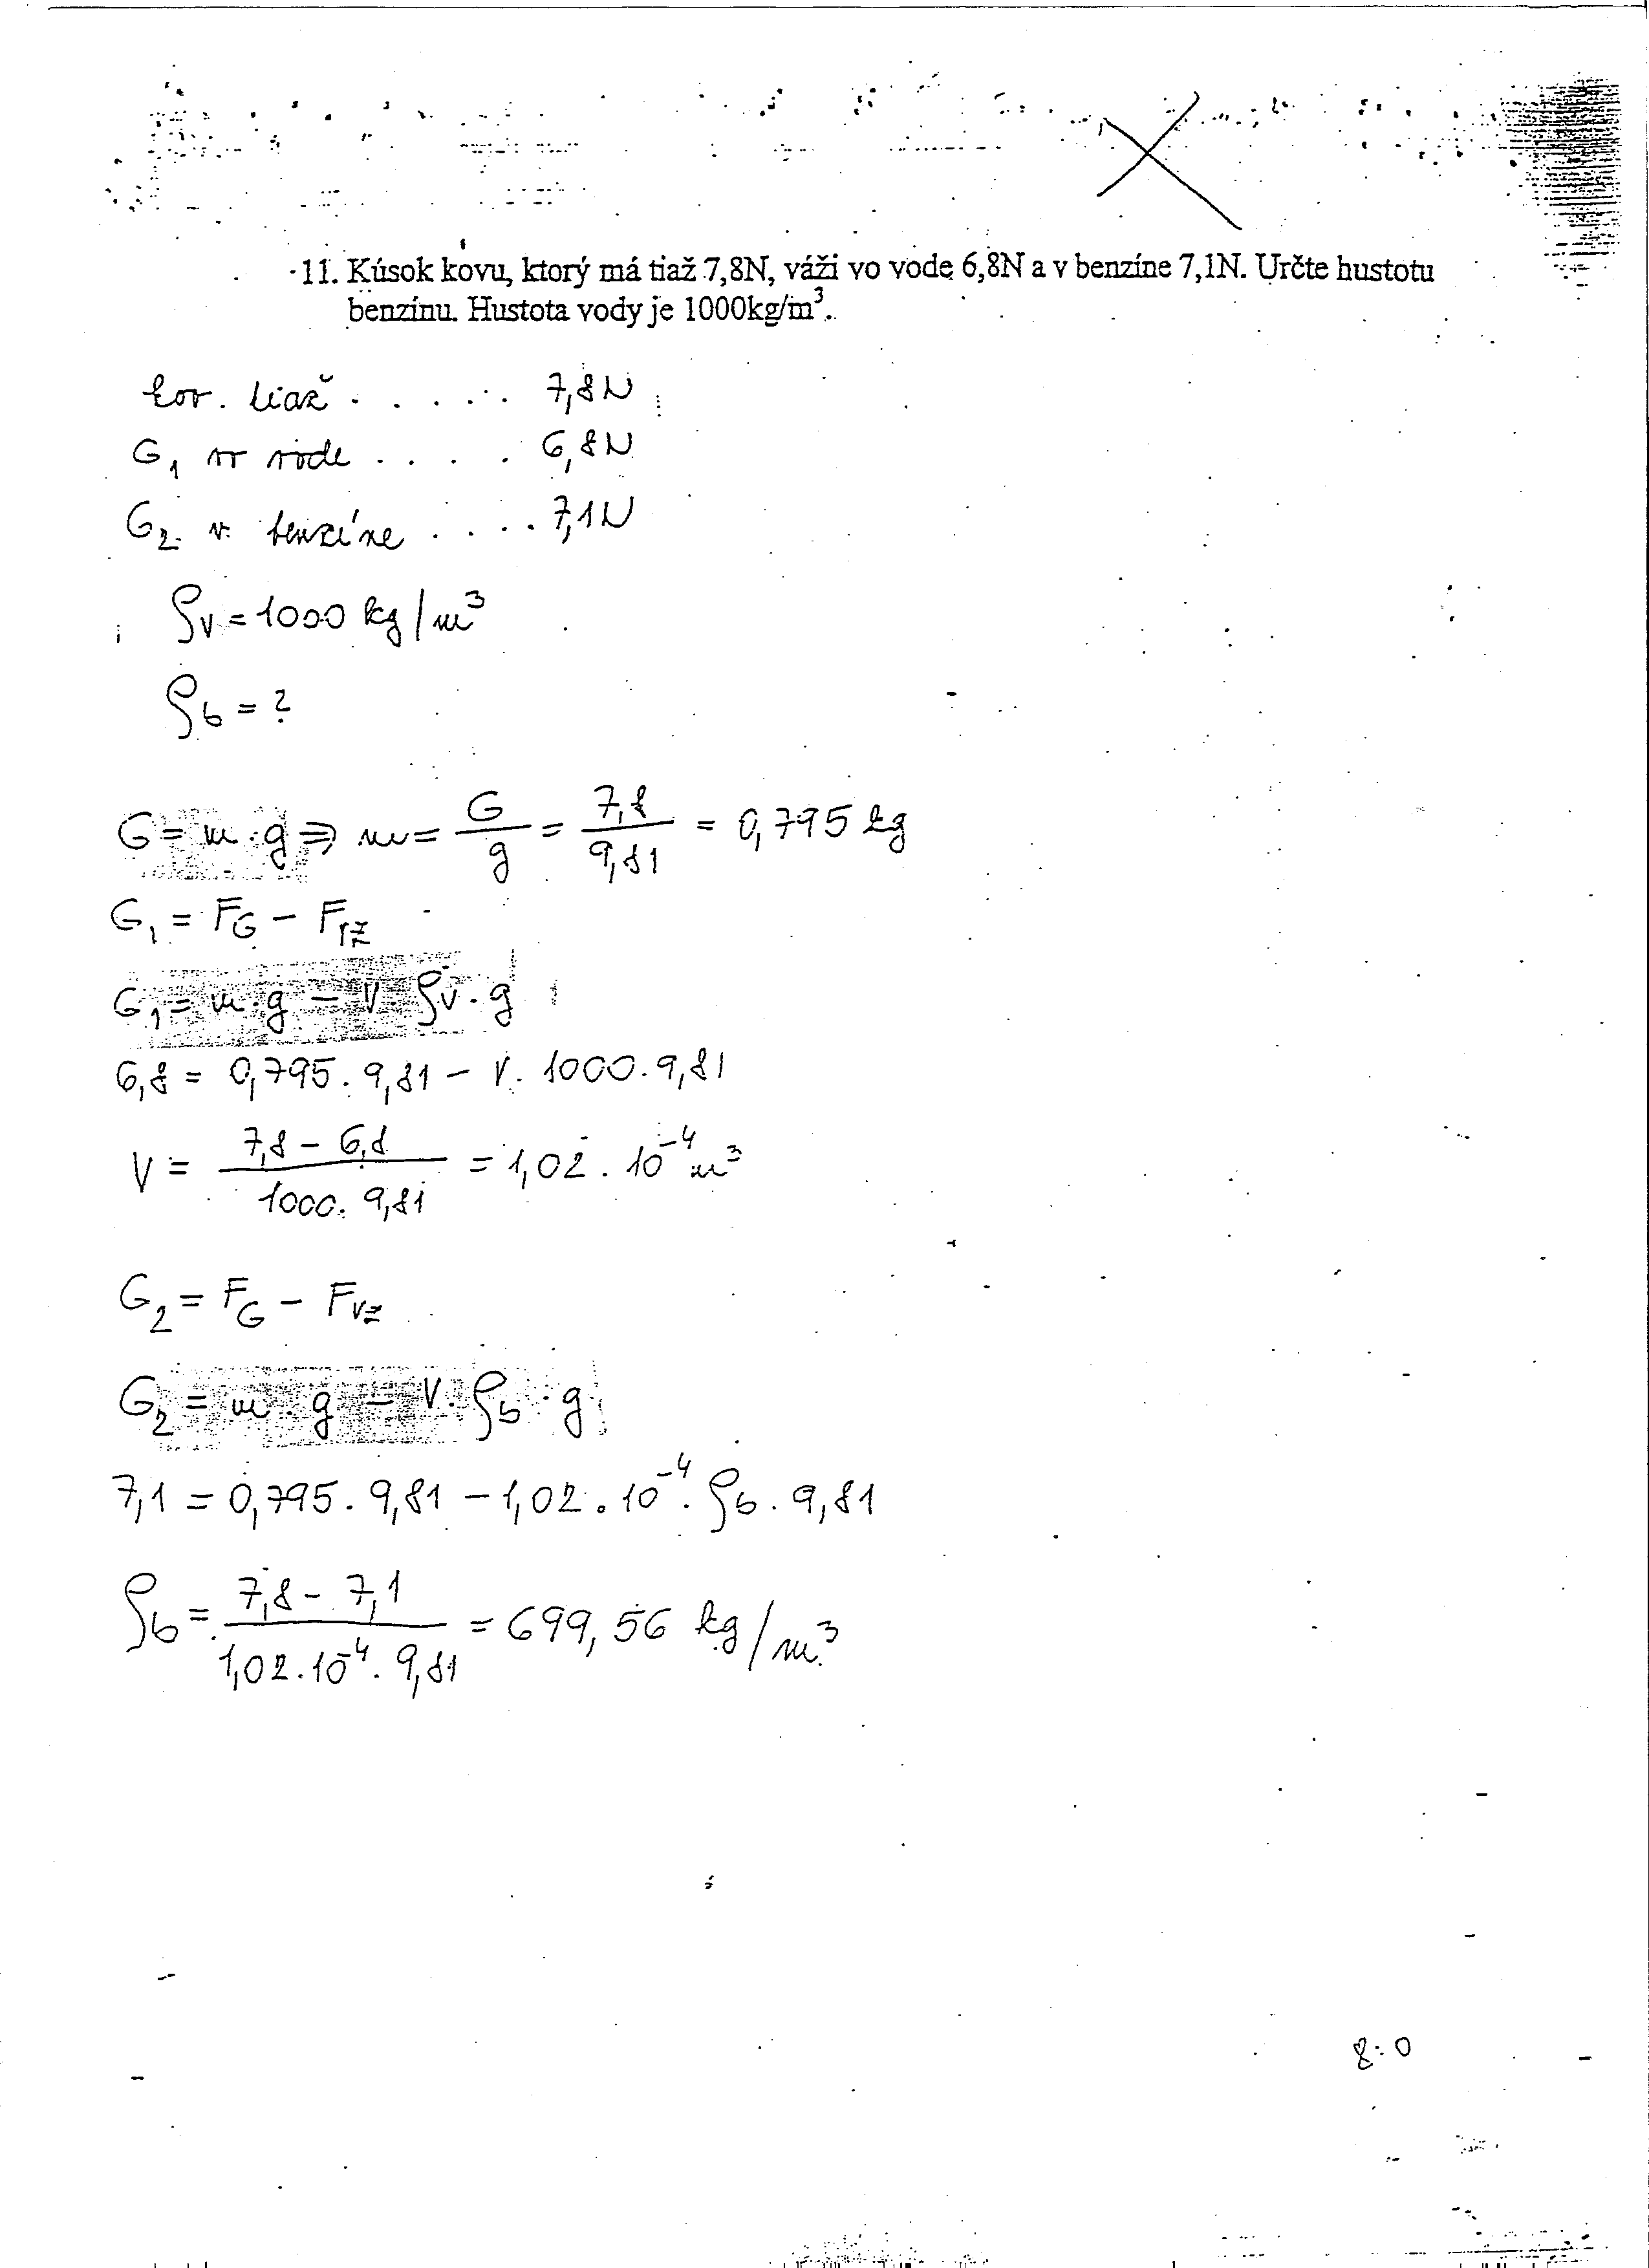 11. Kúsok kovu, ktorý má tiaž 7,8N, váži vo vode 6,8N a v benzíne 7,1N. Určte hustotu
benzínu. Hustota vody je 1000kg/m³.
kov. tiaž . . . . . . 7,8N
G₁ vo vode . . . . . 6,8N
G₂ v benzíne . . . . 7,1N
ρv = 1000 kg/m³
ρb = ?
G = m·g ⇒ m = G/g = 7,8/9,81 = 0,795 kg
G₁ = F_G − F_vz
G₁ = m·g − V·ρv·g
6,8 = 0,795 . 9,81 − V . 1000 . 9,81
V = (7,8 − 6,8)/(1000 . 9,81) = 1,02 . 10⁻⁴ m³
G₂ = F_G − F_vz
G₂ = m·g − V·ρb·g
7,1 = 0,795 . 9,81 − 1,02 . 10⁻⁴ . ρb . 9,81
ρb = (7,8 − 7,1)/(1,02 . 10⁻⁴ . 9,81) = 699,56 kg/m³
8:0